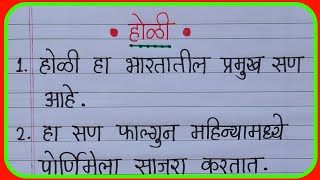 • होळी •
1. होळी हा भारतातील प्रमुख सण
आहे.
2. हा सण फाल्गुन महिन्यामध्ये
पोर्णिमेला साजरा करतात.